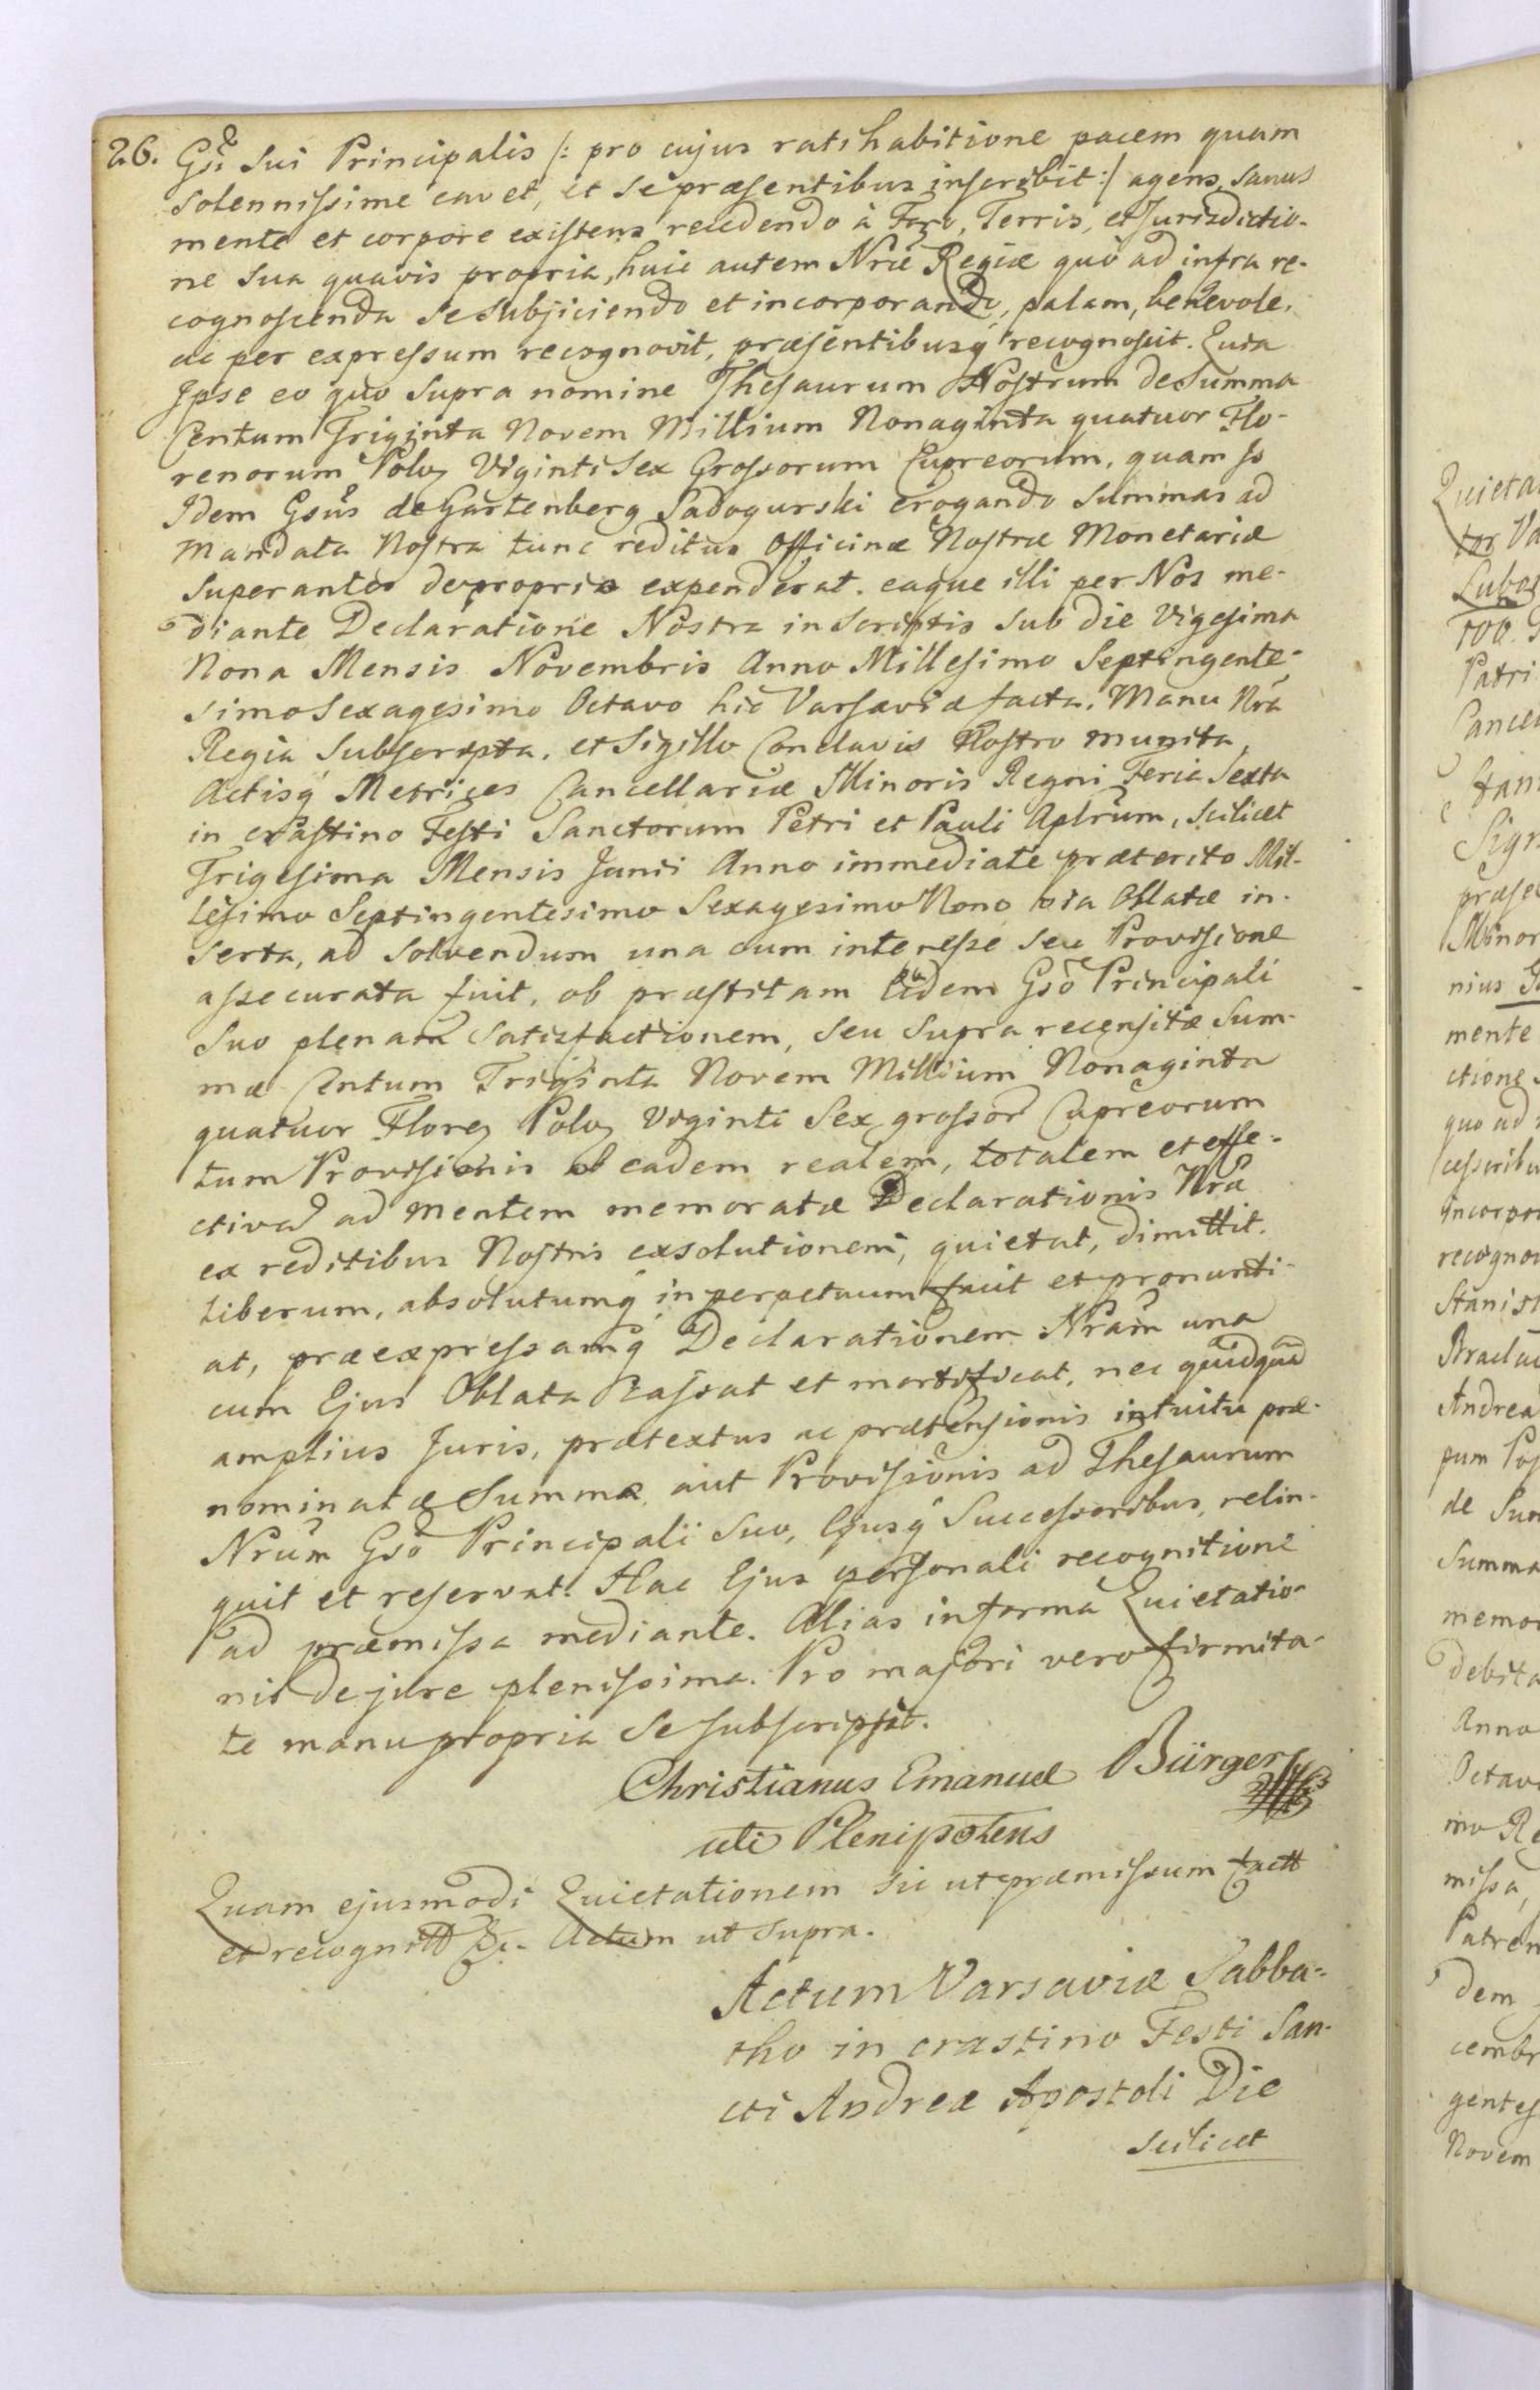 26. Gsi Sui Principalis /: pro cujus ratihabitione pacem quam
solennissime cavet, et se præsentibus inscribit :/ agens, sanus
mente et corpore existens recedendo à Foro, Terris, et Jurisdictio-
ne sua quavis propria, huic autem Nræ Regiæ quò ad infra re-
cognoscenda se subjiciendo et incorporando, palam, benevole,
ac per expressum recognovit, præsentibusq recognoscit. Quia
Ipse eo quo supra nomine Thesaurum Nostrum de Summa
Centum Triginta Novem Millium Nonaginta quatuor Flo-
renorum Polon Viginti Sex Grossorum Cupreorum, quam
Idem Gsus de Gartenberg Sadogurski erogando summas ad
mandata Nostra tunc reditus Officinæ Nostræ Monetariæ
superantes de proprio expenderat. eaque illi per Nos me-
diante Declaratione Nostra in Scriptis sub die Vigesima
Nona Mensis Novembris Anno Millesimo Septingente-
simo Sexagesimo Octavo hic Varsaviæ facta, Manu Nra
Regia Subscripta, et Sigillo Conclavis Nostro munita,
Actisq Metrices Cancellariæ Minoris Regni Feria Sexta
in crastino Festi Sanctorum Petri et Pauli Aplrum, scilicet
Trigesima Mensis Junii Anno immediate præterito Mil-
lesimo Septingentesimo Sexagesimo Nono via Oblatæ in-
serta, ad solvendum una cum interesse seu Provisione
assecurata fuit, ob præstitam eidem Gso Principali
Suo plenam satisfactionem, seu supra recensitæ Sum-
mæ Centum Triginta Novem Millium Nonaginta
quatuor Floren Polon Viginti Sex grossor Cupreorum
tum Provisionis ab eadem realem, totalem et effe-
ctivam ad mentem memoratæ Declarationis Nræ
ex reditibus Nostris exsolutionem, quietat, dimittit.
Liberum, absolutumq in perpetuum facit et pronunti-
at, præexpressamq Declarationem Nram una
cum Ejus Oblata cassat et mortificat, nec quidquam
amplius Juris, prætextus ac prætensionis intuitu præ-
nominatæ Summæ aut Provisionis ad Thesaurum
Nrum Gso Principali suo, Ejusq Successoribus, relin-
quit et reservat. Hac Ejus personali recognitione
ad præmissa mediante. Alias in forma Quietatio-
nis de jure plenissima. Pro majori vero firmita-
te manu propria se subscripsit.
Christianus Emanuel Bürger
uti Plenipotens
Quam ejusmodi Quietationem sic ut præmissum factt
et recognitt &c. Actum ut supra.
Actum Varsaviæ Sabba-
tho in crastino Festi San-
cti Andreæ Apostoli Die
scilicet
Quieta
tor Va
Lubo
Patri
Cancel
Sig
præse
Minor
nius
mente
ctione
quo ad
incorpor
recogno
Stanis
Bracla
Andrea
de Sum
Summa
memor
debita
Anno
Octav
mo Re
missa,
Patren
dem
cembr
gentes
Novem